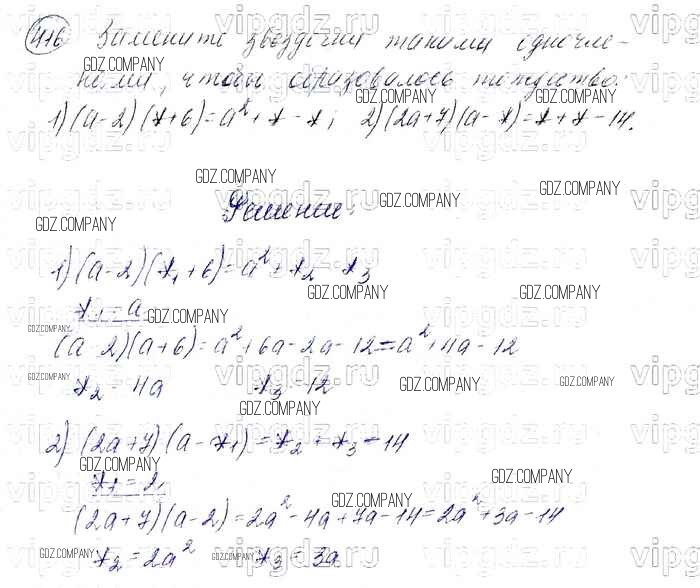 416 Замените звёздочки такими одночле-
нами, чтобы образовалось тождество:
1) (a-2)(*+6)=a²+*-*; 2) (2a+7)(a-*)=*+*-14.
Решение.
1) (a-2)(*₁+6)=a²+*₂-*₃
*₁=a
(a-2)(a+6)=a²+6a-2a-12=a²+4a-12
*₂=4a *₃=12
2) (2a+7)(a-*₁)=*₂+*₃-14
*₁=2
(2a+7)(a-2)=2a²-4a+7a-14=2a²+3a-14
*₂=2a² *₃=3a